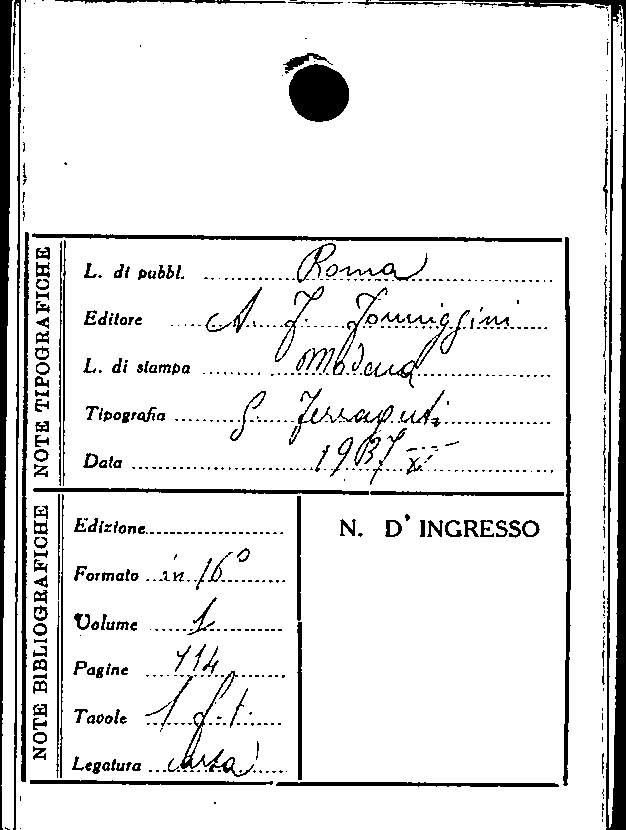 NOTE TIPOGRAFICHE
L. di pubbl. Roma
Editore A. F. Formiggini
L. di stampa Modena
Tipografia G. Ferraguti
Data 1937 XV
NOTE BIBLIOGRAFICHE
Edizione
Formato in 16°
Volume 1
Pagine 114
Tavole 1 f.t.
Legatura carta
N. D'INGRESSO